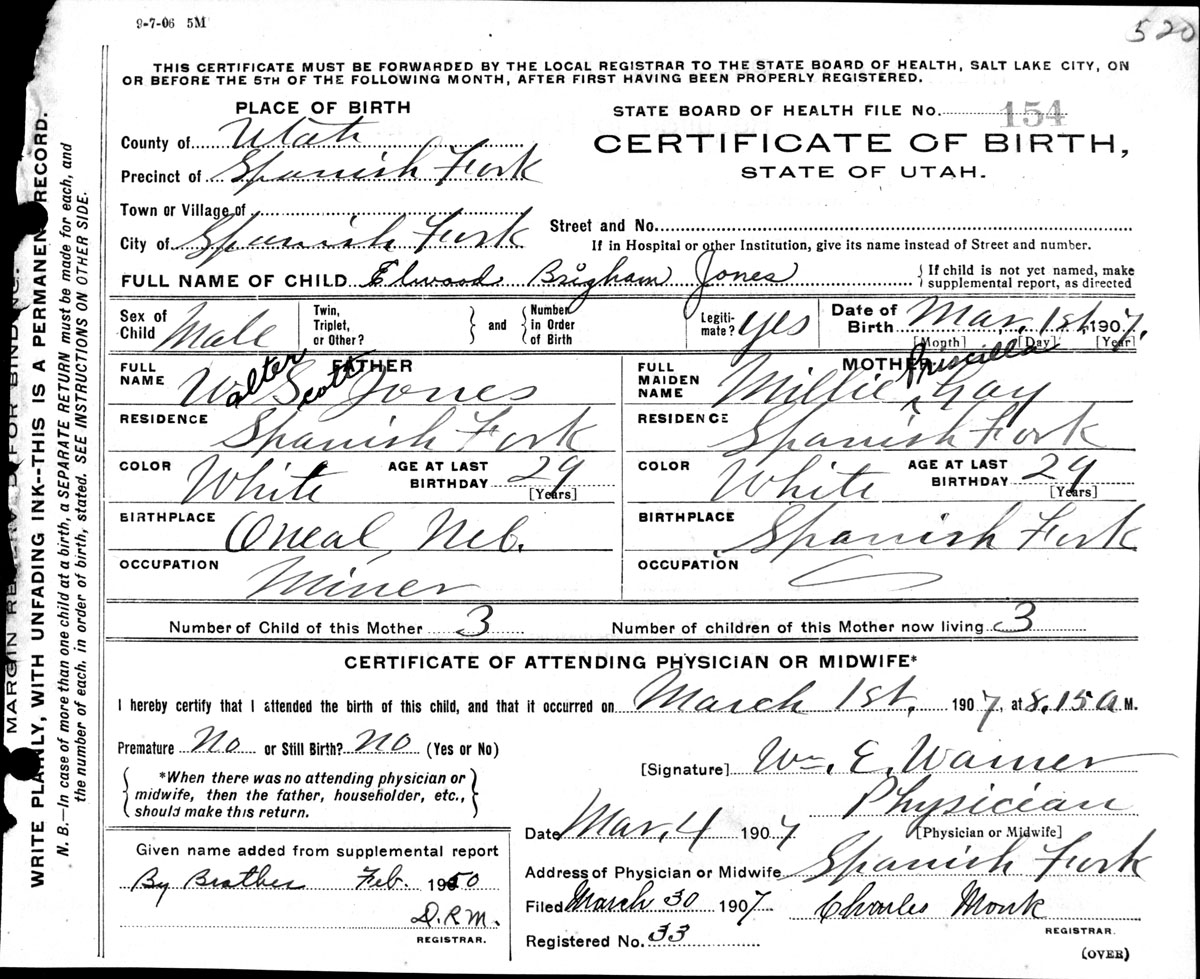 9-7-06 5M
520
THIS CERTIFICATE MUST BE FORWARDED BY THE LOCAL REGISTRAR TO THE STATE BOARD OF HEALTH, SALT LAKE CITY, ON
OR BEFORE THE 5TH OF THE FOLLOWING MONTH, AFTER FIRST HAVING BEEN PROPERLY REGISTERED.
PLACE OF BIRTH
STATE BOARD OF HEALTH FILE No. 154
CERTIFICATE OF BIRTH,
STATE OF UTAH.
County of Utah
Precinct of Spanish Fork
Town or Village of
City of Spanish Fork
Street and No.
If in Hospital or other Institution, give its name instead of Street and number.
FULL NAME OF CHILD Elwood Brigham Jones
{ If child is not yet named, make
supplemental report, as directed
Sex of Child Male
Twin, Triplet, or Other? } and { Number in Order of Birth
Legiti-mate? yes
Date of Birth Mar. 1st, 1907.
[Month] [Day] [Year]
FATHER
FULL NAME Walter Scott Jones
RESIDENCE Spanish Fork
COLOR White AGE AT LAST BIRTHDAY 29
[Years]
BIRTHPLACE Oneal, Neb.
OCCUPATION Miner
MOTHER
FULL MAIDEN NAME Millie Priscilla Gay
RESIDENCE Spanish Fork
COLOR White AGE AT LAST BIRTHDAY 29
[Years]
BIRTHPLACE Spanish Fork
OCCUPATION
Number of Child of this Mother 3 Number of children of this Mother now living 3
CERTIFICATE OF ATTENDING PHYSICIAN OR MIDWIFE*
I hereby certify that I attended the birth of this child, and that it occurred on March 1st, 1907, at 8.15 a M.
Premature No or Still Birth? No (Yes or No)
{ *When there was no attending physician or
midwife, then the father, householder, etc.,
should make this return. }
[Signature] Wm. E. Warner
Physician
[Physician or Midwife]
Date Mar. 4 1907
Address of Physician or Midwife Spanish Fork
Filed March 30 1907 Charles Monk
REGISTRAR.
Registered No. 33
(OVER)
Given name added from supplemental report
By Brother Feb. 1950
D.R.M.
REGISTRAR.
MARGIN FOR BINDING.
WRITE PLAINLY, WITH UNFADING INK--THIS IS A PERMANENT RECORD.
N. B.—In case of more than one child at a birth, a SEPARATE RETURN must be made for each, and
the number of each, in order of birth, stated. SEE INSTRUCTIONS ON OTHER SIDE.